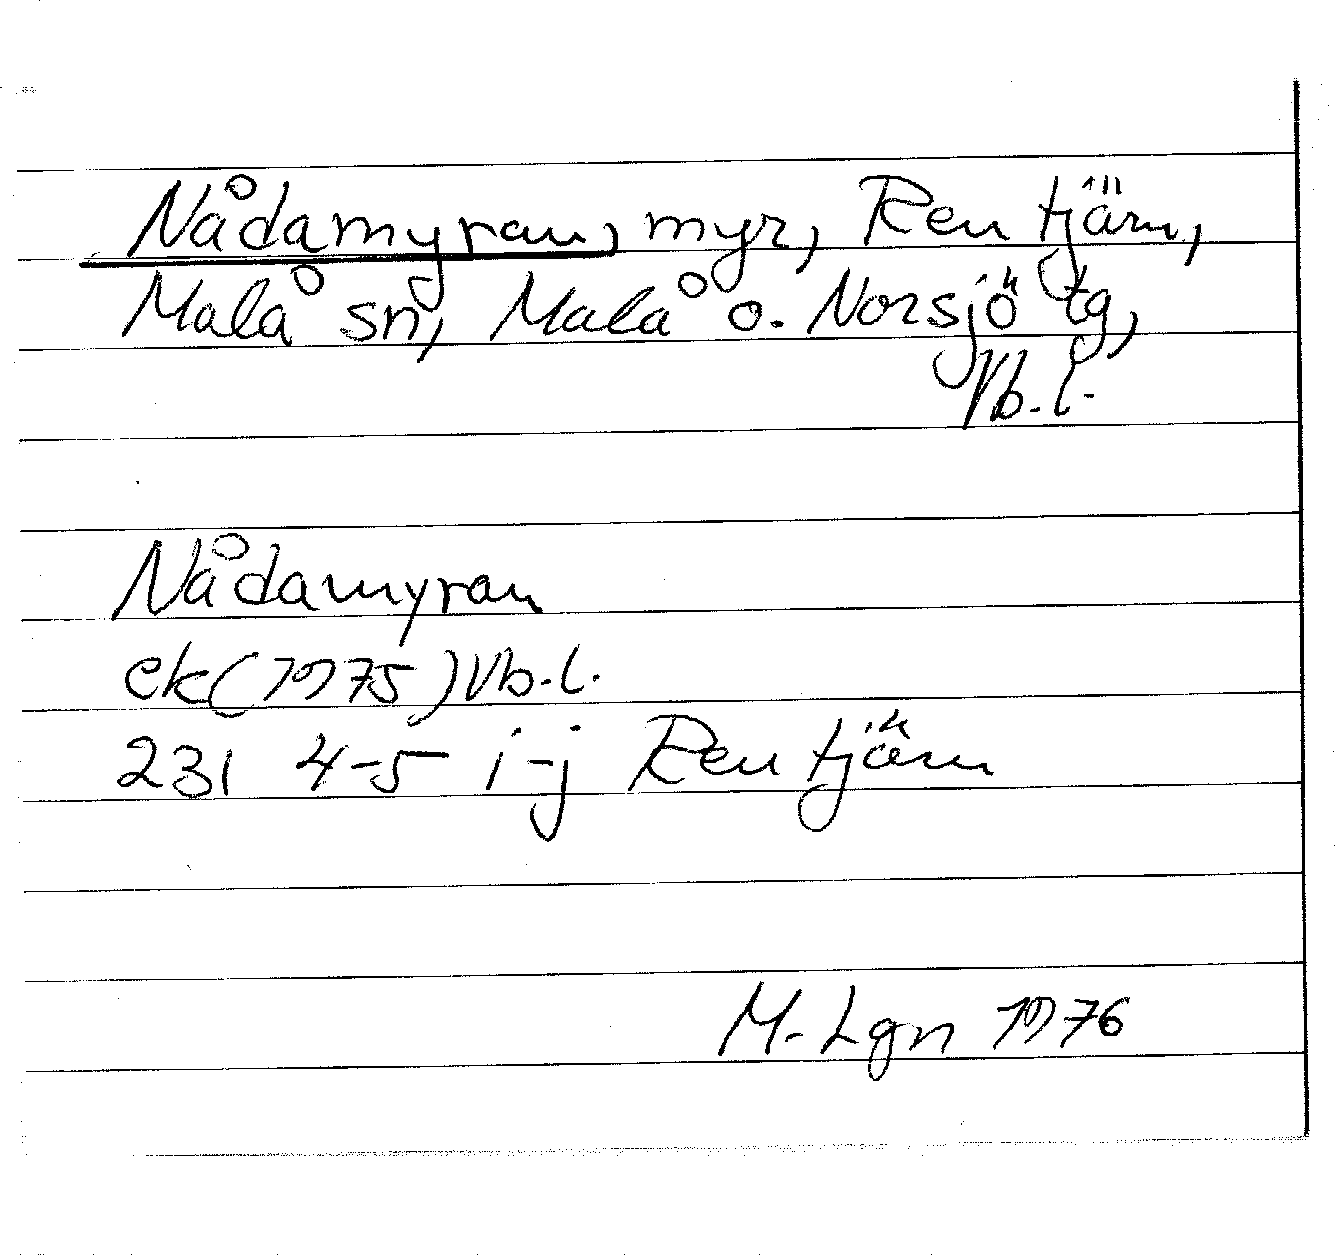 Nådamyran, myr, Rentjärn,
Malå sn, Malå o. Norsjö tg,
Vb.l.
Nådamyran
ek(1975)Vb.l.
231 4-5 i-j Rentjärn
M. Lgn 1976